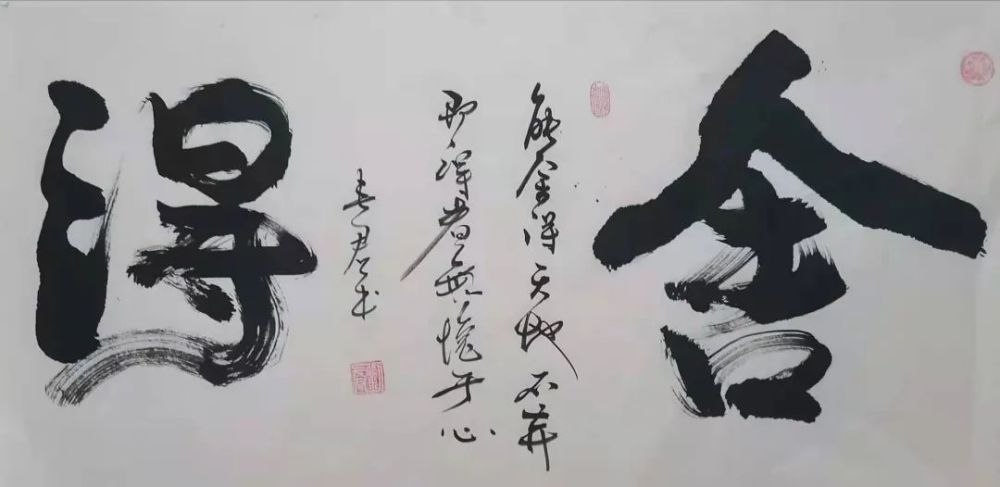 舍得
能舍得天地不弃
即得者無愧于心
春君书